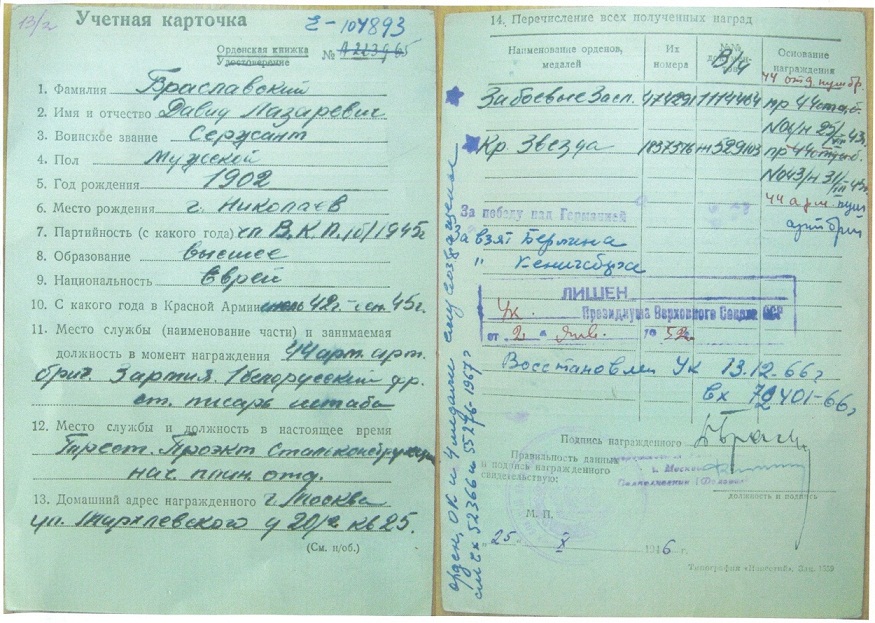 13/2
Учетная карточка
Е-104893
Орденская книжка
Удостоверение № А 223965
1. Фамилия Браславский
2. Имя и отчество Давид Лазаревич
3. Воинское звание Сержант
4. Пол Мужской
5. Год рождения 1902
6. Место рождения г. Николаев
7. Партийность (с какого года) чл. В.К.П./б/1945г
8. Образование высшее
9. Национальность Еврей
10. С какого года в Красной Армии 42г. 45г.
11. Место службы (наименование части) и занимаемая
должность в момент награждения 44 арт.
бриг. 3 армия. 1 белорусский фр.
ст. писарь штаба
12. Место службы и должность в настоящее время
Проект Стальконструкция
нач. план. отд.
13. Домашний адрес награжденного г. Москва
ул. Мархлевского д 20/2 кв 25.
(См. н/об.)
14. Перечисление всех полученных наград
Наименование орденов, медалей
Их номера
В/ч
Основание награждения
44 отд. пуш бр.
За боевые Засл. 474291 1114464 пр 44
№04/н 25/
Кр. Звезда 1837576 529103 пр 44
№043/н 31/
44 арм. пуш
арт бриг
За победу над Германией
За взят Берлина
" Кенигсберга
ЛИШЕН
Ук. Президиума Верховного Совета СССР
от 2 " янв. 19 52
Восстановлен Ук 13.12.66г
вх 72401-66г
орден, ОК и 4 медали ему возвращены
см вх 52366 и 55276-1967г
Подпись награжденного
Правильность данных
и подпись награжденного
свидетельствую:
г. Москвы
Подполковник
должность и подпись
М. П.
25. X 1946 г.